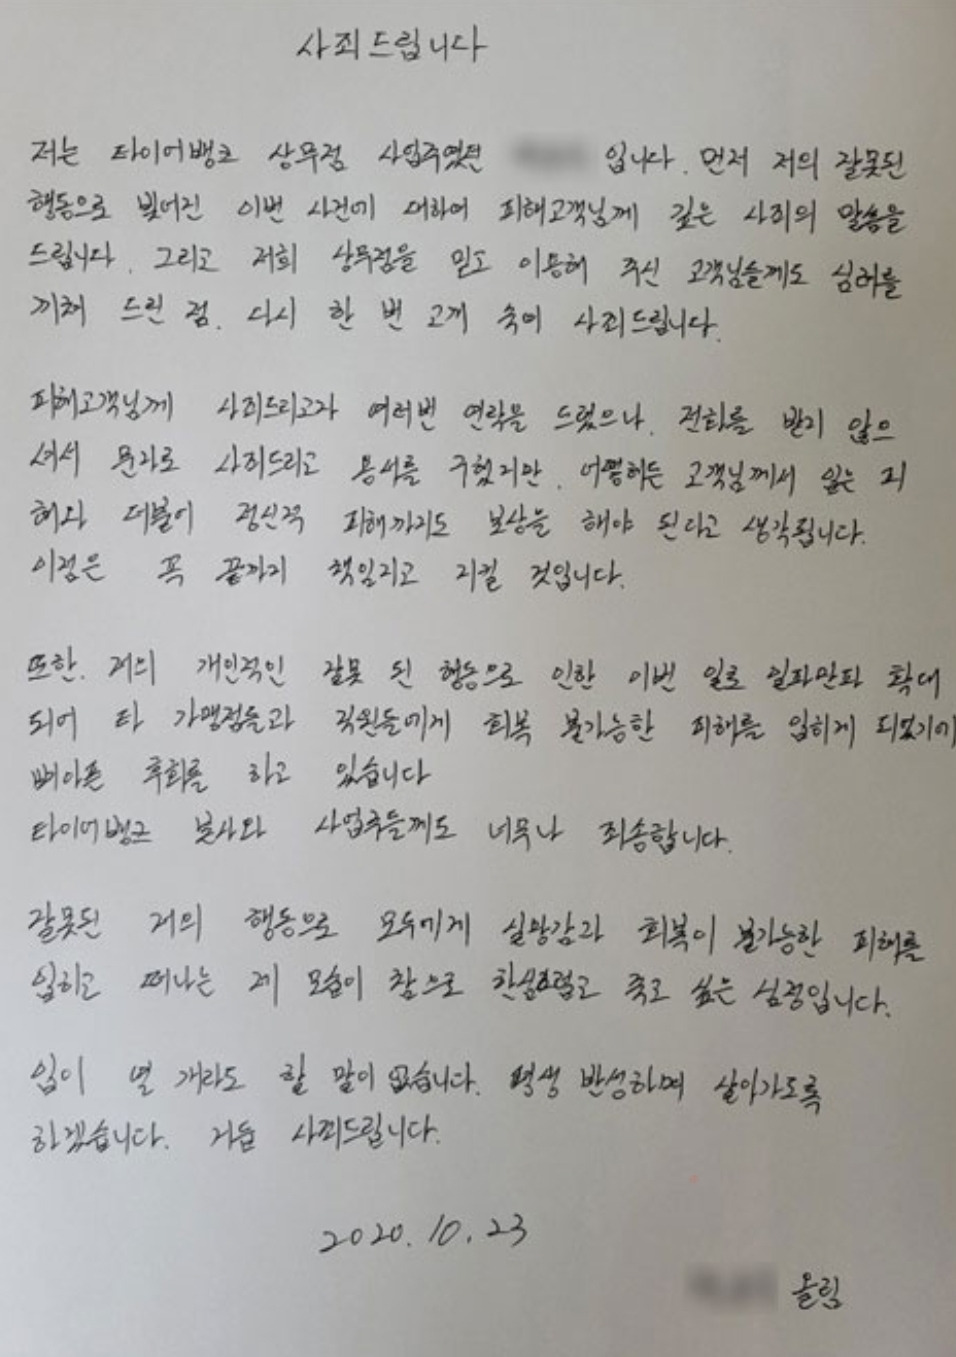 사죄드립니다
저는 타이어뱅크 상무점 사업주였던 입니다. 먼저 저의 잘못된
행동으로 빚어진 이번 사건에 대하여 피해고객님께 깊은 사죄의 말씀을
드립니다. 그리고 저희 상무점을 믿고 이용해 주신 고객님들께도 심려를
끼쳐 드린 점. 다시 한 번 고개 숙여 사죄드립니다.
피해고객님께 사죄드리고자 여러번 연락을 드렸으나, 전화를 받지 않으
셔서 문자로 사죄드리고 용서를 구했지만, 어떻하든 고객님께서 입는 피
해와 더불어 정신적 피해까지도 보상을 해야 된다고 생각됩니다.
이점은 꼭 끝까지 책임지고 지킬 것입니다.
또한. 저의 개인적인 잘못 된 행동으로 인한 이번 일로 일파만파 확대
되어 타 가맹점들과 직원들에게 회복 불가능한 피해를 입히게 되었기에
뼈아픈 후회를 하고 있습니다
타이어뱅크 본사와 사업주들께도 너무나 죄송합니다.
잘못된 저의 행동으로 모두에게 실망감과 회복이 불가능한 피해를
입히고 떠나는 제 모습이 참으로 한심스럽고 죽고 싶은 심정입니다.
입이 열 개라도 할 말이 없습니다. 평생 반성하며 살아가도록
하겠습니다. 거듭 사죄드립니다.
2020. 10. 23
올림